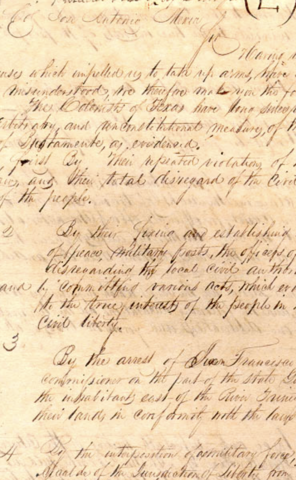 Col Jose Antonio Mexia
Sir
Having
causes which impelled us to take up arms, have
misunderstood, we therefore make you the fo
The Colonists of Texas have long since
and unconstitutional measures of the
of Bustamante, as evidenced
First By their repeated violation of
and their total disregard of the Civil
of the people.
2 By their fixing and establishing
of peace military posts, the officers of
disregarding the local civil authori
and by committing various acts, which evi
the true interests of the people in
Civil liberty.
3
By the arrest of Juan Francisco
commissioner on the part of the State
the inhabitants east of the River Trini
their lands in conformity with the laws
4 By the interposition of a military force,
Alcalde of the Jurisdiction of Liberty from